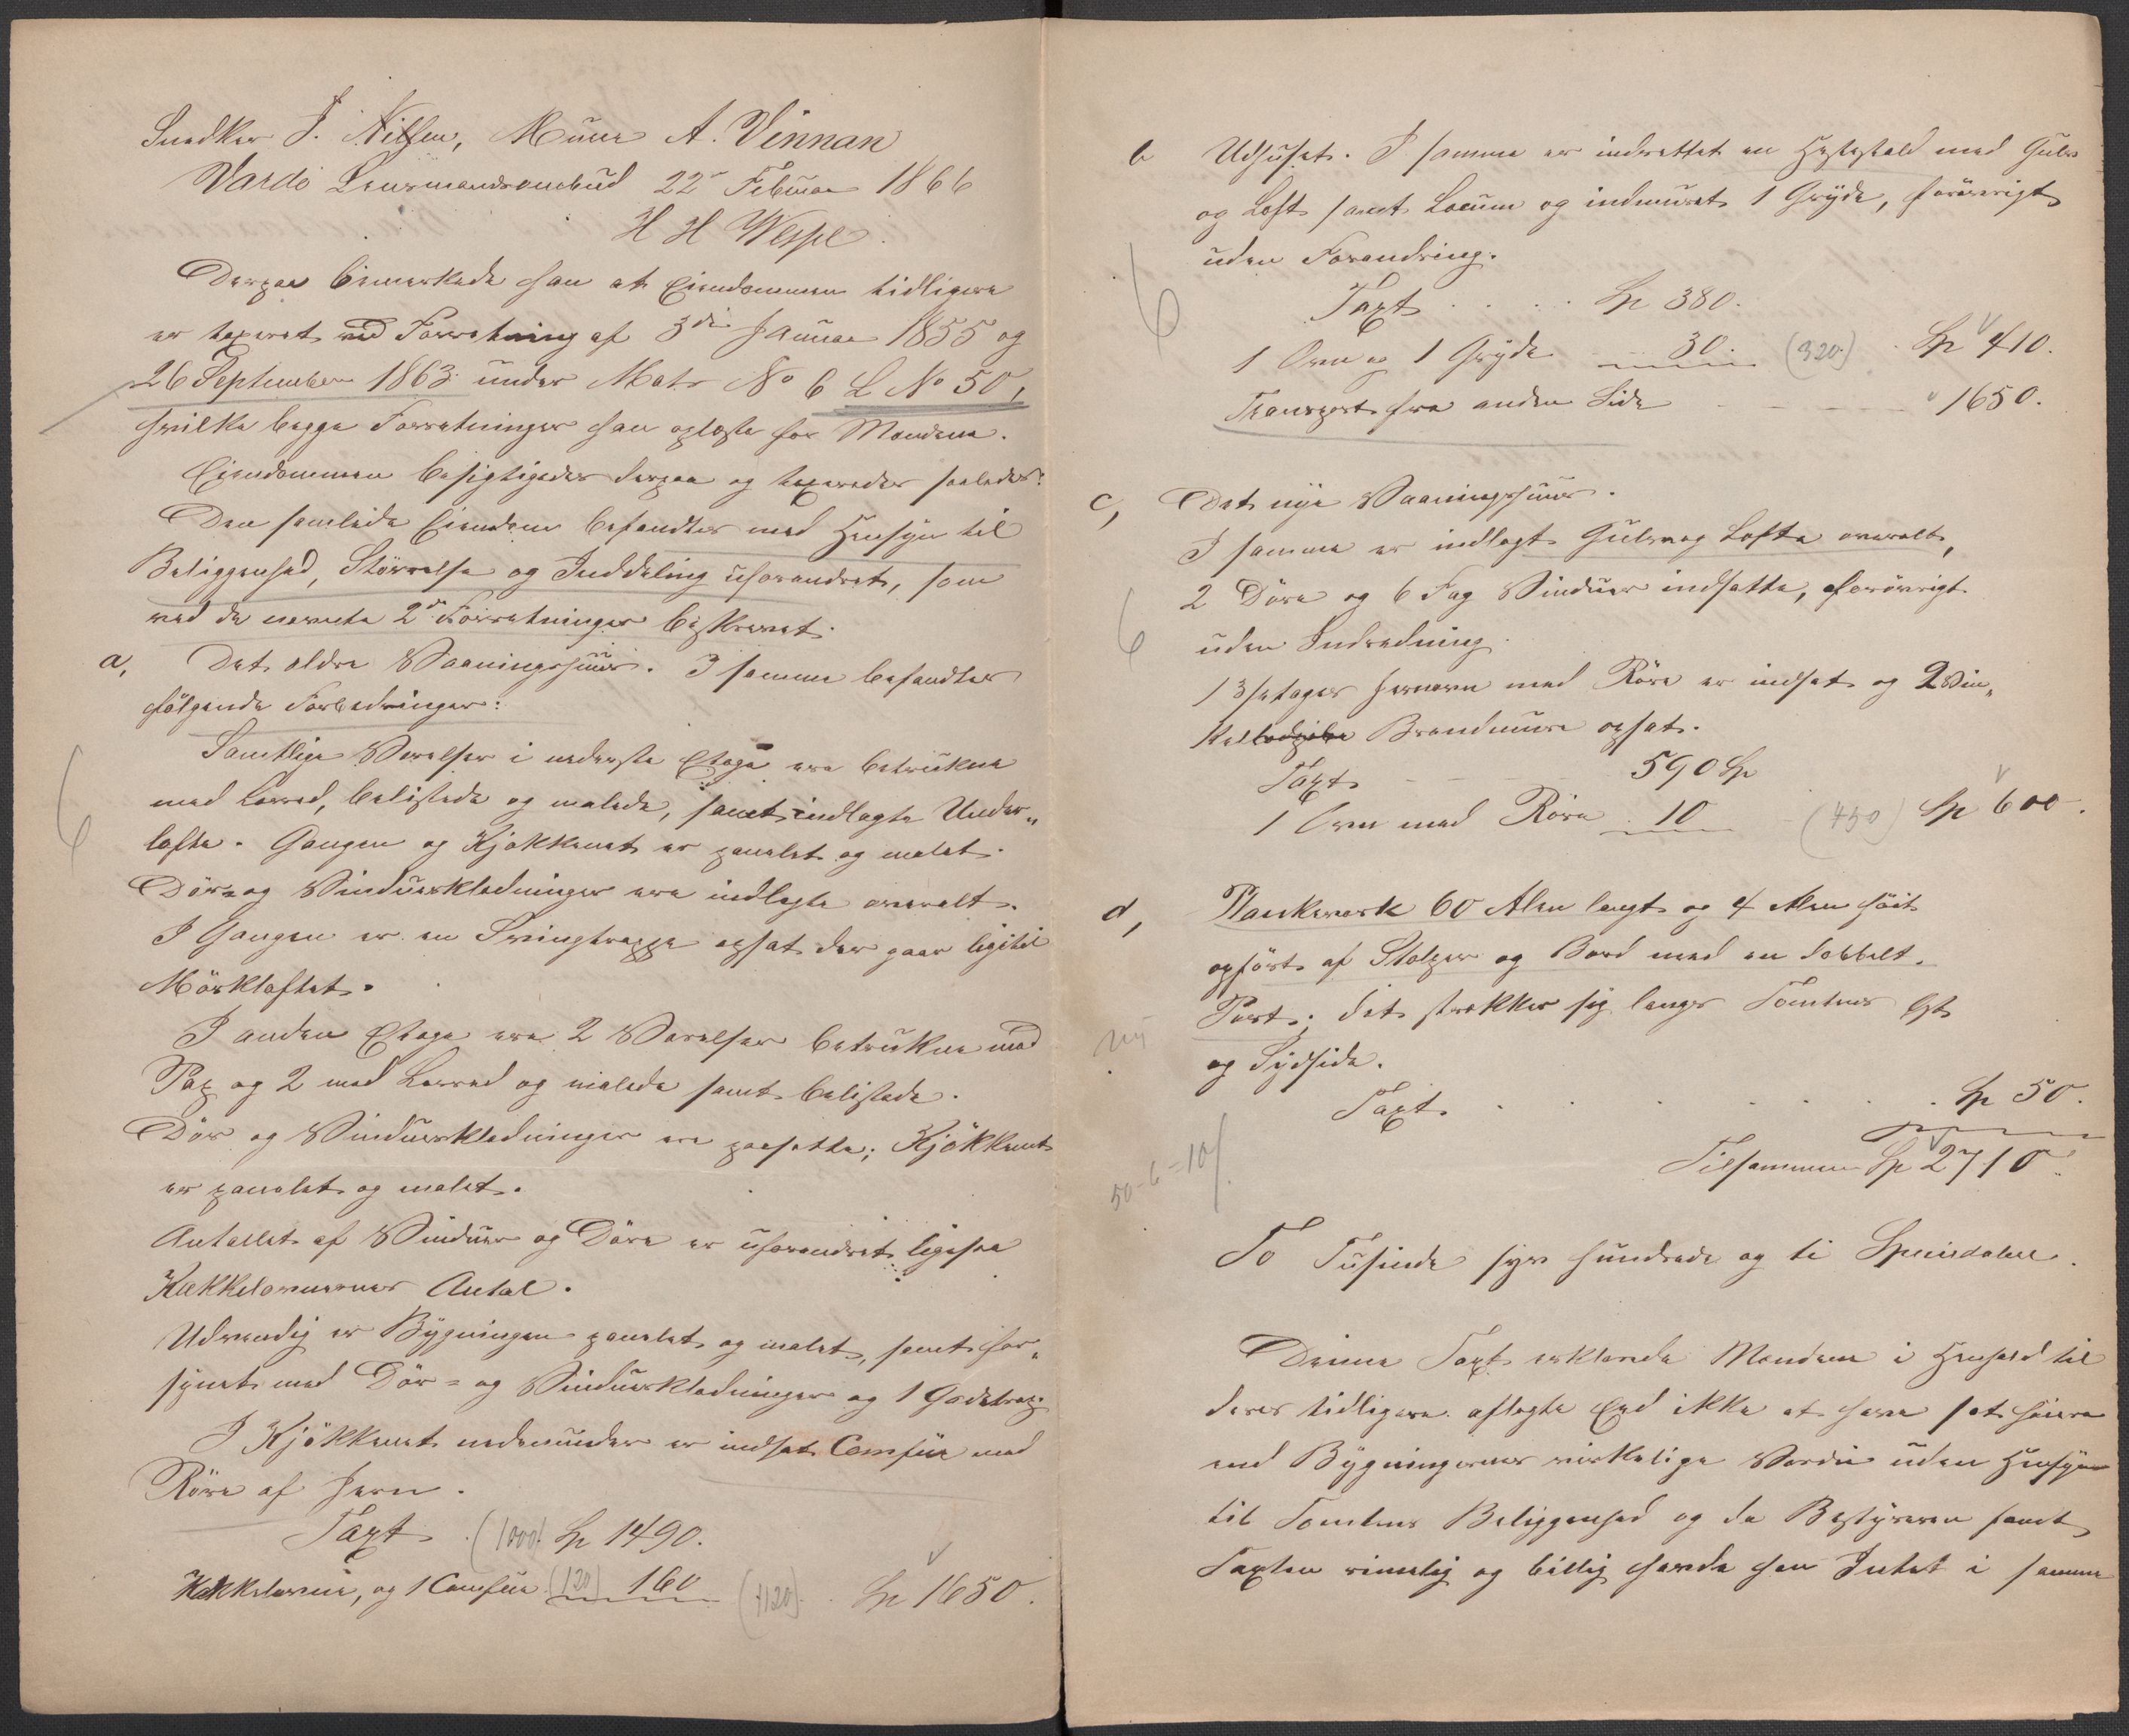 Snedker J. Nilsen, Murer A. Vinnan
Vardö Lensmandsombud 22de Februar 1866
H H Wespe
Derpaa bemærkede han at Eiendommen tidligere
er taxeret ved Forretning af 3die Januar 1855 og
26 September 1863 under Matr No 6 L No 50,
hvilke begge Forretninger han oplæste for Mændene.
Eiendommen besigtigedes derpaa og taxeredes saaledes:
Den samlede Eiendom befandtes med Hensyn til
Beliggenhed, Störrelse og Inddeling uforandret, som
ved de nævnte 2de Forretninger beskrevet.
a, Det ældre Vaaningshuus. I samme befandtes
fölgende Forbedringer:
Samtlige Værelser i nederste Etage ere betrukne
med Lærred, belistede og malede, samt indlagte Under„
lofte. Gangen og Kjøkkenet er panelet og malet.
Dör- og Vindusklædninger ere indlagte overalt.
I Gangen er en Svingtrappe opsat der gaar lige til
Mörkloftet.
I anden Etage ere 2 Værelser betrukne med
Pap og 2 med Lærred og malede samt belistede.
Dör og Vindusklædninger ere paasatte; Kjökkenet
er panelet og malet.
Antallet af Vinduer og Döre er uforandret ligesaa
Kakkelovnernes Antal.
Udvendig er Bygningen panelet og malet, samt for„
synet med Dör= og Vindusklædninger og 1
I Kjökkenet nedenunder er indsat Comfür med
Röre af Jern.
Taxt (1000) Sp 1490.
Kakkelovne, og 1 Comfür (120) 160 (1120) Sp 1650.
b Udhuset. I samme er indrettet en Hestestald med Gulv
og Loft samt Locum og indmuret 1 Gryde, forövrigt
uden Forandring.
Taxt . . . . Sp 380.
1 Ovn og 1 Gryde 30. (320) Sp 410.
Transport fra anden Side " 1650.
c, Det nye Vaaningshuus.
I samme er indlagt Gulve og Lofte overalt,
2 Döre og 6 Fag Vinduer indsatte, forövrigt
uden Indredning.
1 3 etages Jernovn med Röre er indsat og 2 Vin„
kel Brandmure opsat.
Taxt 590 Sp
1 Ovn med Röre 10 (450) Sp 600.
d, Plankeværk 60 Alen langt og 4 Alen höit
opfört af Stolper og Bord med en dobbelt
Port; det strækker sig langs Tomtens Öst
ny
og Sydside.
Taxt . . . . . . . Sp 50.
Tilsammen Sp 2710.
50-6-10/
To Tusinde syv hundrede og ti Speciedaler.
Denne Taxt erklærede Mændene i Henhold til
deres tidligere aflagte Eed ikke at have sat höiere
end Bygningernes virkelige Værdie uden Hensyn
til Tomtens Beliggenhed og da Bestyreren fandt
Taxten rimelig og billig havde han Intet i samme